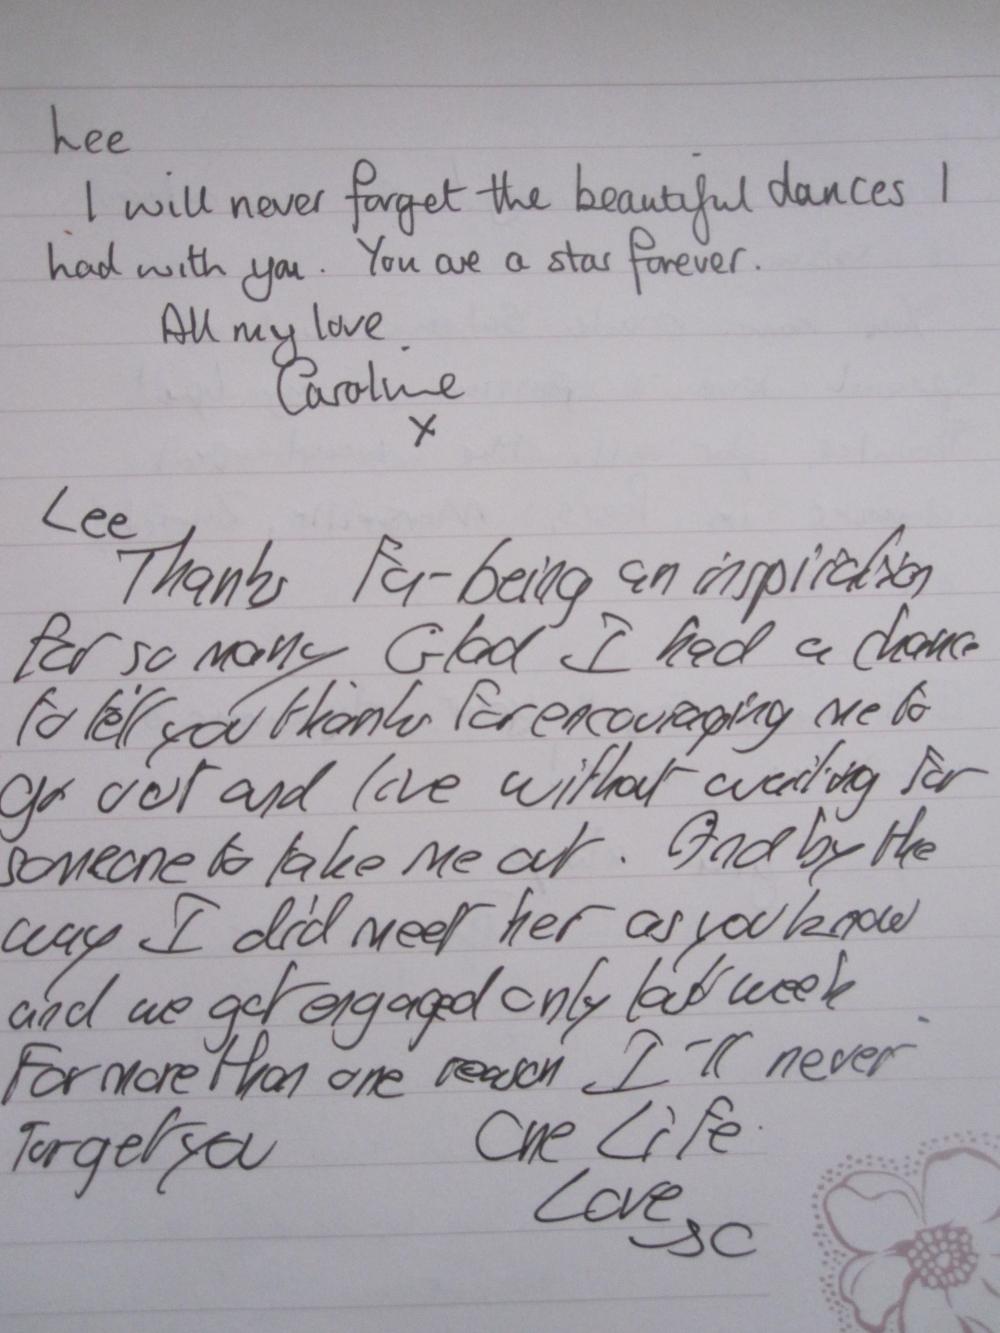 Lee
I will never forget the beautiful dances I
had with you. You are a star forever.
All my love
Caroline
x
Lee
Thanks for being an inspiration
for so many Glad I had a chance
to tell you thanks for encouraging me to
go out and live without waiting for
someone to take me out. And by the
way I did meet her as you know
and we got engaged only last week
For more than one reason I'll never
forget you One Life
Love
SC